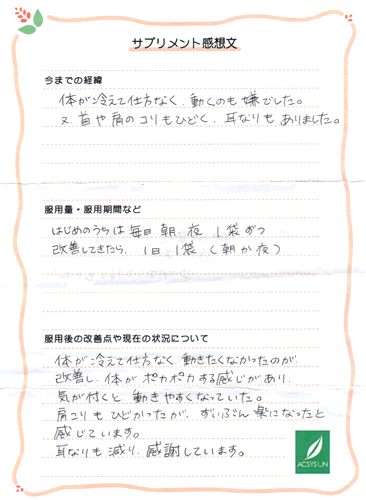 サプリメント感想文
今までの経緯
体が冷えて仕方なく、動くのも嫌でした。
又、首や肩のコリもひどく、耳なりもありました。
服用量・服用期間など
はじめのうちは毎日朝、夜 1袋ずつ
改善してきたら、1日1袋(朝か夜)
服用後の改善点や現在の状況について
体が冷えて仕方なく動きたくなかったのが
改善し、体がポカポカする感じがあり、
気が付くと動きやすくなっていた。
肩こりもひどかったが、ずいぶん楽になったと
感じています。
耳なりも減り、感謝しています。
ACSYSUN